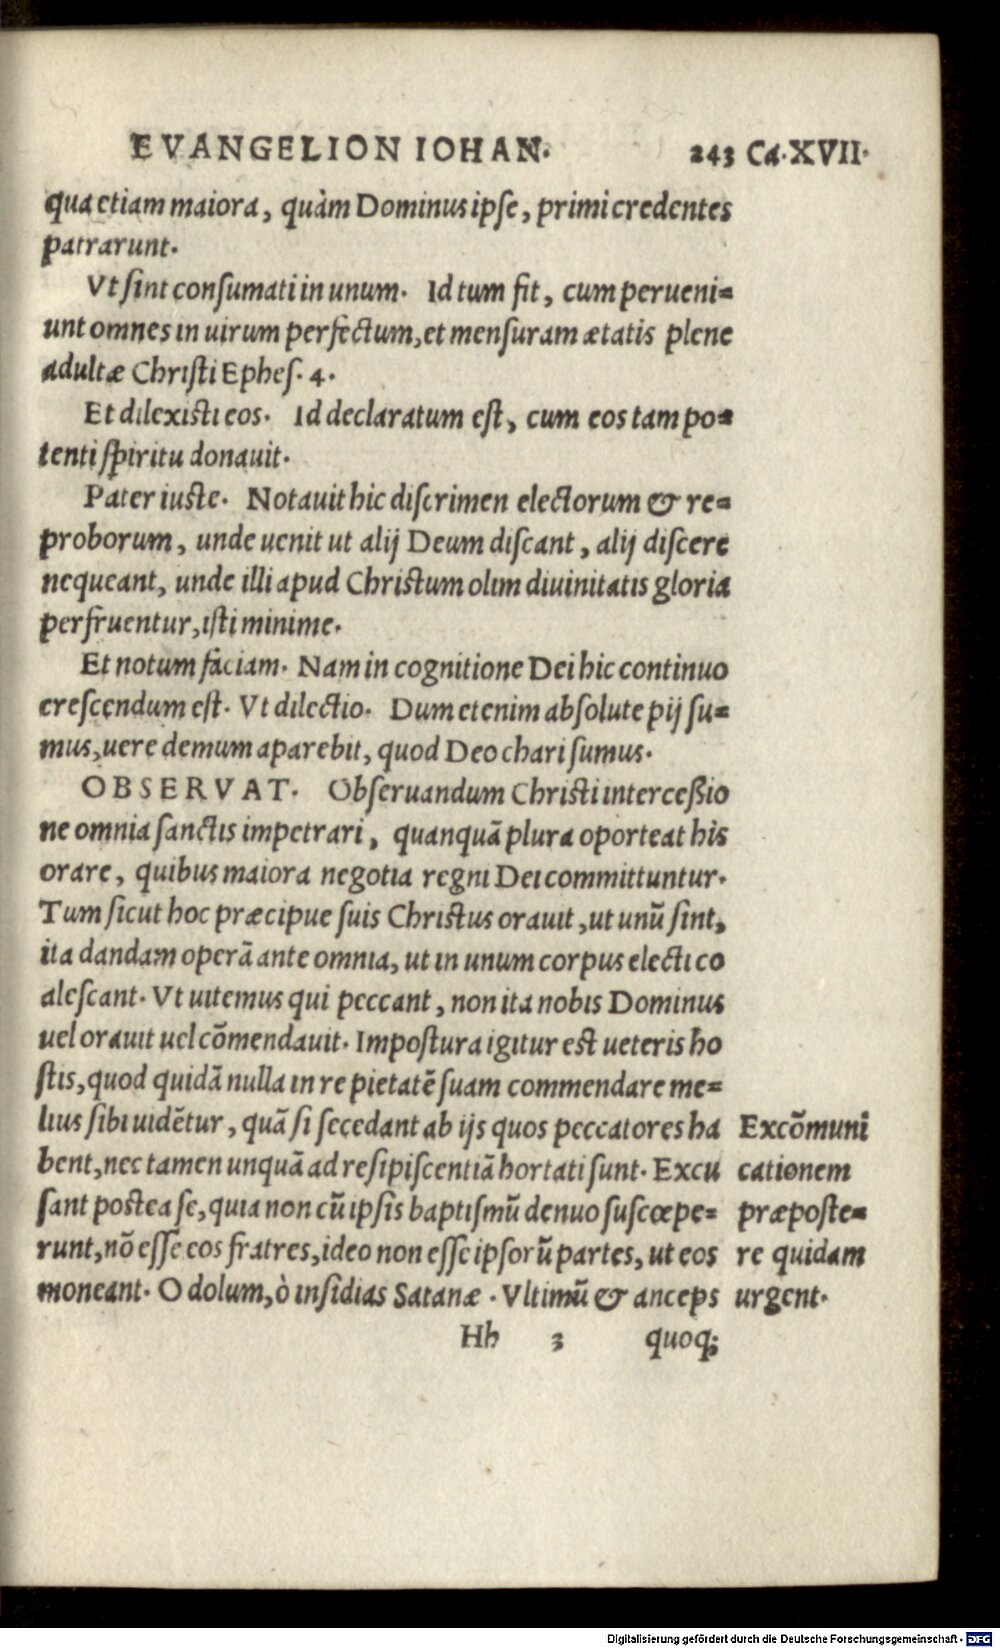 EVANGELION IOHAN. 243 Ca. XVII.
qua etiam maiora, quàm Dominus ipse, primi credentes
patrarunt.
Vt sint consumati in unum. Id tum fit, cum perueni=
unt omnes in uirum perfectum, et mensuram ætatis plene
adultæ Christi Ephes. 4.
Et dilexisti eos. Id declaratum est, cum eos tam po=
tenti spiritu donauit.
Pater iuste. Notauit hic discrimen electorum & re=
proborum, unde uenit ut alij Deum discant, alij discere
nequeant, unde illi apud Christum olim diuinitatis gloria
perfruentur, isti minime.
Et notum faciam. Nam in cognitione Dei hic continuo
crescendum est. Vt dilectio. Dum etenim absolute pij su=
mus, uere demum aparebit, quod Deo chari sumus.
OBSERVAT. Obseruandum Christi interceßio
ne omnia sanctis impetrari, quanquā plura oporteat his
orare, quibus maiora negotia regni Dei committuntur.
Tum sicut hoc præcipue suis Christus orauit, ut unū sint,
ita dandam operā ante omnia, ut in unum corpus electi co
alescant. Vt uitemus qui peccant, non ita nobis Dominus
uel orauit uel cōmendauit. Impostura igitur est ueteris ho
stis, quod quidā nulla in re pietatē suam commendare me=
lius sibi uidētur, quā si secedant ab ijs quos peccatores ha
bent, nec tamen unquā ad resipiscentiā hortati sunt. Excu
sant postea se, quia non cū ipsis baptismū denuo suscœpe=
runt, nō esse eos fratres, ideo non esse ipsorū partes, ut eos
moneant. O dolum, ò insidias Satanæ. Vltimū & anceps
Excōmuni
cationem
præposte=
re quidam
urgent.
Hh 3 quoq;
Digitalisierung gefördert durch die Deutsche Forschungsgemeinschaft - DFG